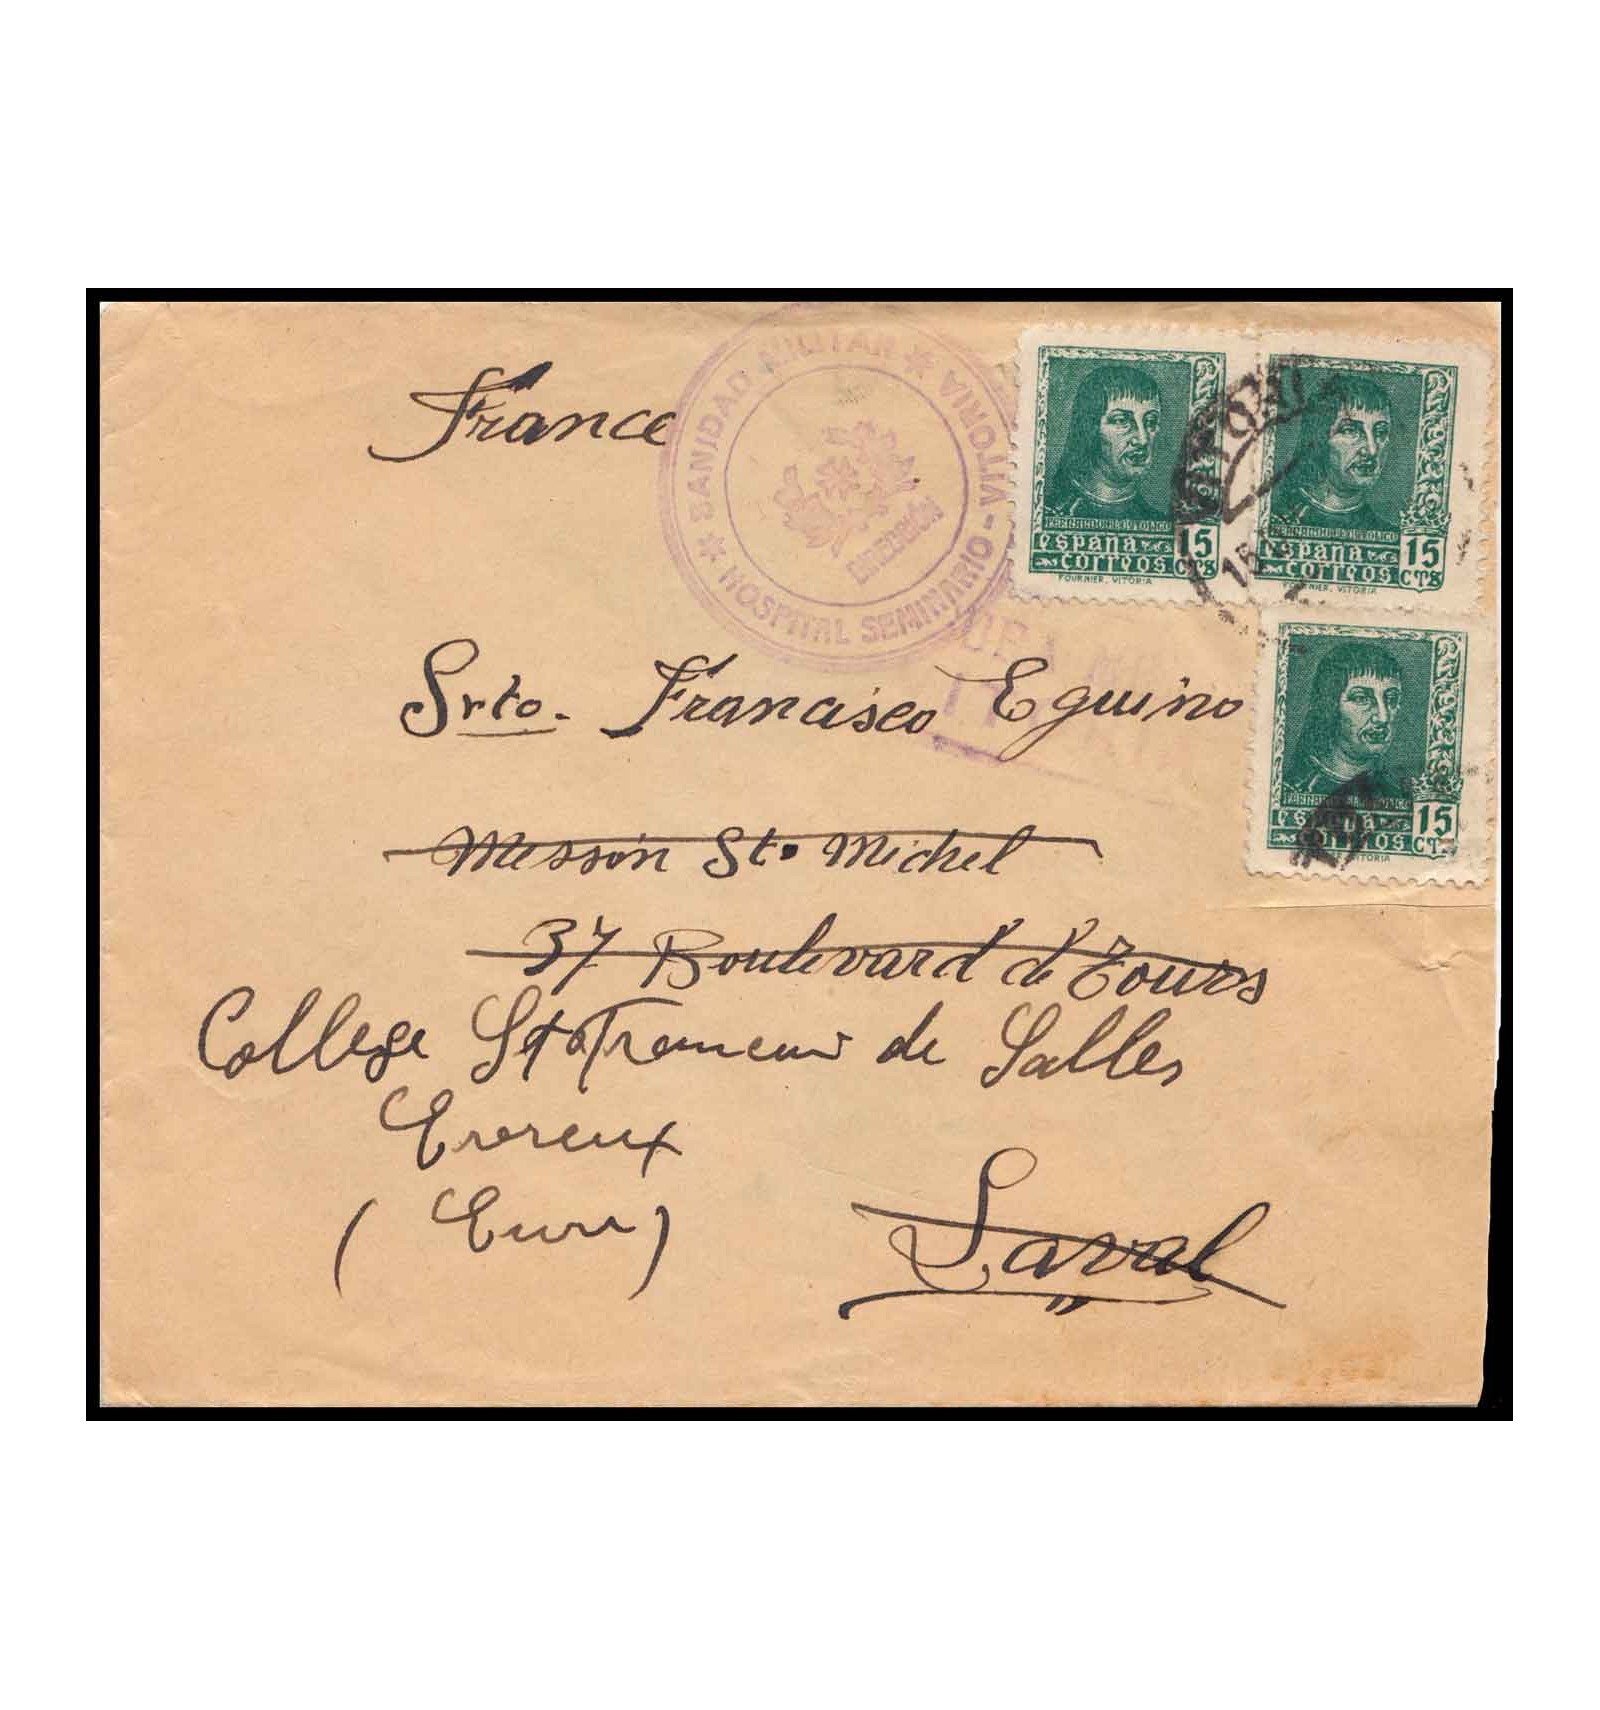 France
* SANIDAD MILITAR * HOSPITAL SEMINARIO - VITORIA
DIRECCIÓN
FERNANDO EL CATOLICO
españa
correos
15
CTS
FOURNIER. VITORIA
FERNANDO EL CATOLICO
españa
correos
15
CTS
FOURNIER. VITORIA
FERNANDO EL CATOLICO
españa
correos
15
CTS
VITORIA
Srto. Francisco Eguino
Messión St. Michel
37 Boulevard de Tours
College St de Salles
Evreux
(Eure)
Laval